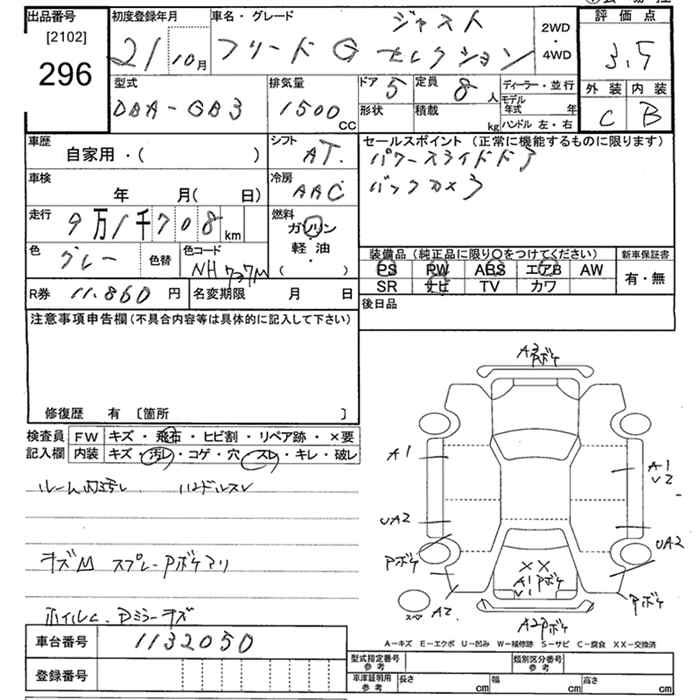 出品番号 初度登録年月 車名・グレード 評価点
[2102]
296
21 10月
フリード G ジャスト セレクション
2WD
・
4WD
3.5
型式 排気量 ドア 5 定員 8人 ディーラー・並行
DBA-GB3 1500 CC
形状 積載 kg
モデル年式 年
ハンドル 左・右
外装 内装
C B
車歴 シフト セールスポイント (正常に機能するものに限ります)
自家用・( ) AT.
パワースライドドア
車検 冷房
年 月( 日) AAC
バックカメラ
走行 燃料
9万1千708km
ガソリン
軽・油
・
( )
色 グレー 色替 色コード NH737M
装備品 (純正品に限り〇をつけてください) 新車保証書
PS PW ABS エアB AW
SR ナビ TV カワ
有・無
R券 11.860 円 名変期限 月 日
後日品
注意事項申告欄(不具合内容等は具体的に記入して下さい)
修復歴 有 〔箇所 〕
検査員 FW キズ・飛石・ヒビ割・リペア跡・×要
記入欄 内装 キズ・汚れ・コゲ・穴・スレ・キレ・破レ
ルーム内汚レ ハンドルスレ
キズM スプレーPボケアリ
ホイルC. Dミラーキズ
A3Pボケ
A1
A1
U2
UA2
UA2
Pボケ
XX
A1Pボケ
Pボケ
スペア
A2
A2Pボケ
A-キズ E-エクボ U-凹み W-補修跡 S-サビ C-腐食 XX-交換済
車台番号 1132050
登録番号
型式指定番号 参考 類別区分番号 参考
車庫証明用 参考 長さ cm 幅 cm 高さ cm